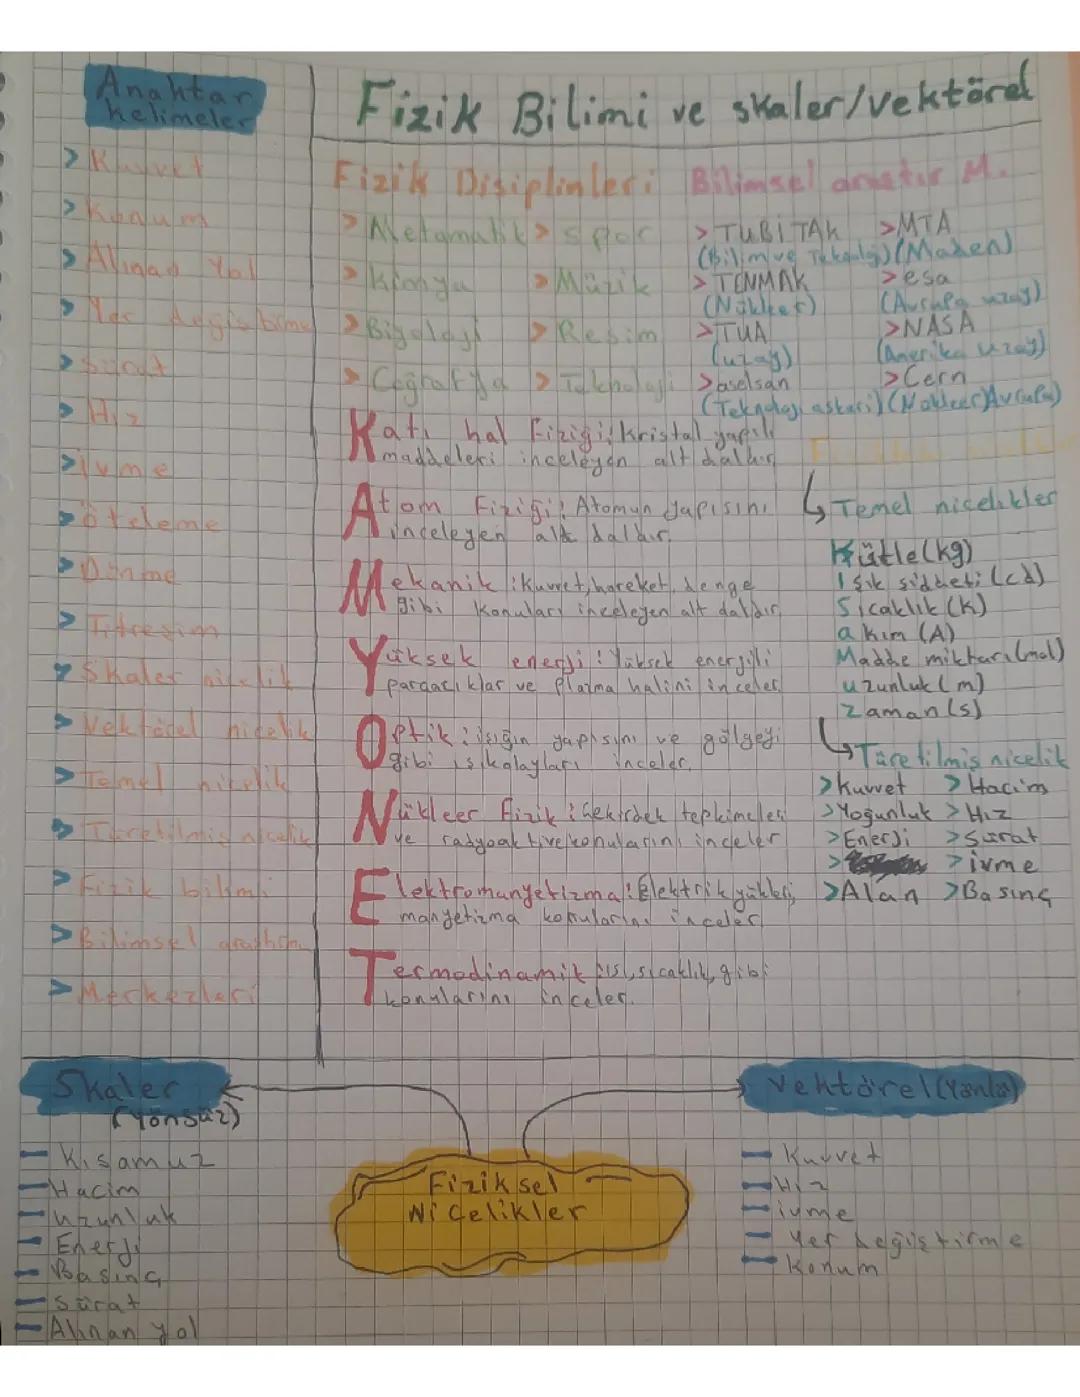 Anahtar
kelimeler
> Kuvvet
> Konum
> Alınan Yol
> Yer değiştirme
> Sürat
> Hız
> ivme
> öteleme
> Dönme
> Titreşim
> Skaler nicelik
> Vektörel nicelik
> Temel nicelik
> Türetilmiş nicelik
> Fizik bilimi
> Bilimsel araştırm
> Merkezleri
Fizik Bilimi ve skaler/vektörel
Fizik Disiplinleri
> Metamatik > spor
> Kimya > Müzik
> Biyoloji > Resim
> Coğrafya > Teknoloji
Bilimsel araştır M.
> TUBİTAK >MTA
(Bilim ve Teknoloji) (Maden)
> TENMAK >esa
(Nükleer) (Avrupa uzay)
>TUA >NASA
(uzay) (Amerika uzay)
>aselsan >Cern
(Teknoloji askeri) (Nükleer Avrupa)
Katı hal Fiziği: Kristal yapılı
maddeleri inceleyen alt daldır
Atom Fiziği: Atomun yapısını
inceleyen alt daldır.
Mekanik: Kuvvet, hareket, denge
gibi konuları inceleyen alt daldır
Yüksek enerji: Yüksek enerjili
parçacıklar ve plazma halini inceler
Optik: ışığın yapısını ve gölgeyi
gibi ışık olayları inceler.
Nükleer Fizik: çekirdek tepkimeleri
ve radyoaktive konularını inceler
Elektromanyetizma: Elektrik yükleri,
manyetizma konularını inceler
Termodinamik: ısı, sıcaklık, gibi
konularını inceler.
Temel nicelikler
Kütle(kg)
Işık şiddeti (cd)
Sıcaklık (K)
akım (A)
Madde miktarı(mol)
uzunluk (m)
zaman(s)
Türetilmiş nicelik
>Kuvvet >Hacim
>Yoğunluk >Hız
>Enerji >Sürat
> >ivme
>Alan >Basınç
Skaler
(Yönsüz)
Hacim
uzunluk
Enerji
Basınç
Sürat
Alınan yol
Fiziksel
Nicelikler
Vektörel (Yönlü)
Kuvvet
Hız
ivme
Yer değiştirme
Konum